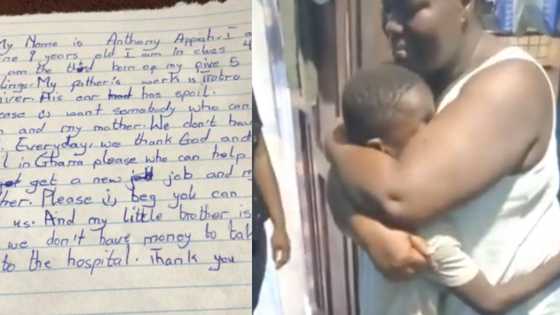 My Name is Anthony Appeah. I a
ne 9 years old I am in clas 4
am the third born of my give 5
lings. My father's work is trotro
iver. His car had has spoil.
ease I want somebody who can
n and my mother. We don't have
. Everyday, we thank God and
l in Ghana please who can help
get get a new job job and m
ther. Please I beg you can
us. And my little brother is
we don't have money to tak
to the hospital. Thank you